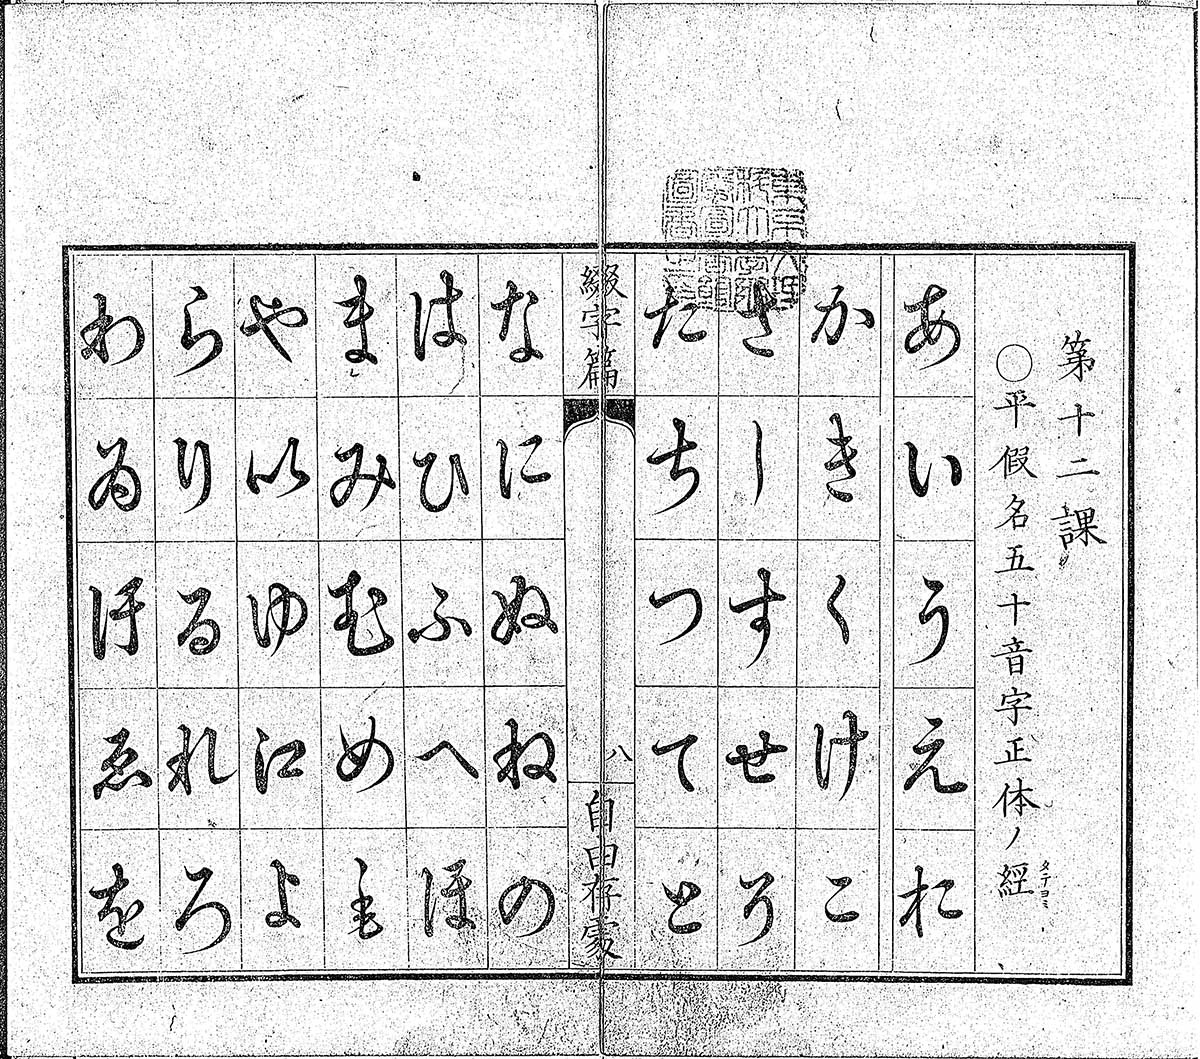 第十二課
○平假名五十音字正体ノ經
タテヨミ
あいうえお
かきくけこ
さしすせそ
たちつてと
綴字篇
八
自由存處
なにぬねの
はひふへほ
まみむめも
や以ゆ江よ
らりるれろ
わゐ汙ゑを